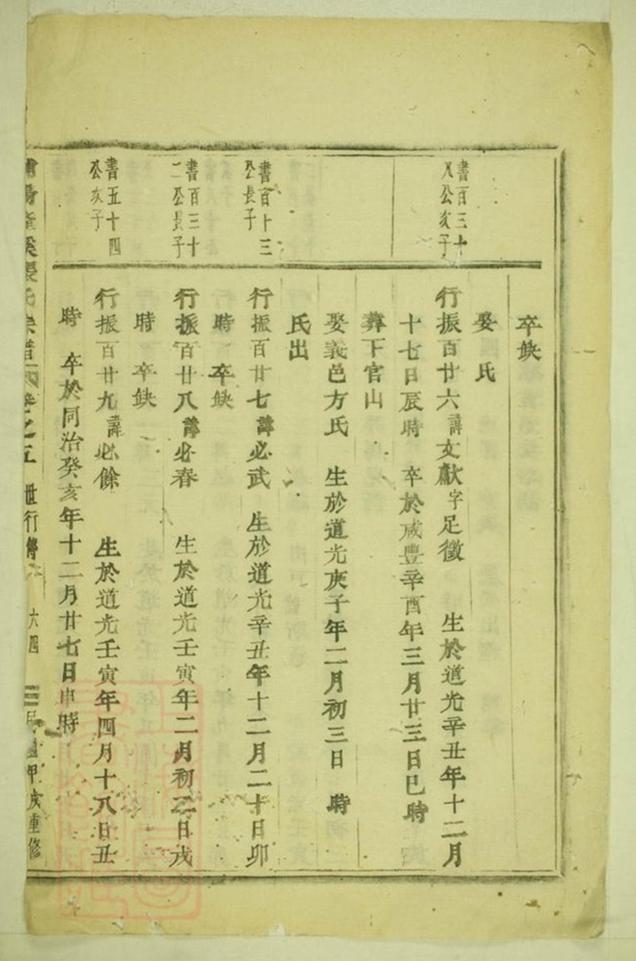 卒缺
娶 氏
書百三十
八公亥子
行振百廿六諱文獻字足徵 生於道光辛丑年十二月
十七日辰時 卒於咸豐辛酉年三月廿三日巳時
葬下官山
娶義邑方氏 生於道光庚子年二月初三日 時
氏出
書百十三
公長子
行振百廿七諱必武 生於道光辛丑年十二月二十日卯
時 卒缺
書百三十
二公長子
行振百廿八諱必春 生於道光壬寅年二月初二日戌
時 卒缺
書五十四
公亥子
行振百廿九諱必餘 生於道光壬寅年四月十八日丑
時 卒於同治癸亥年十二月廿七日申時
氏宗譜 卷之五 世行傳 六四 甲戌重修